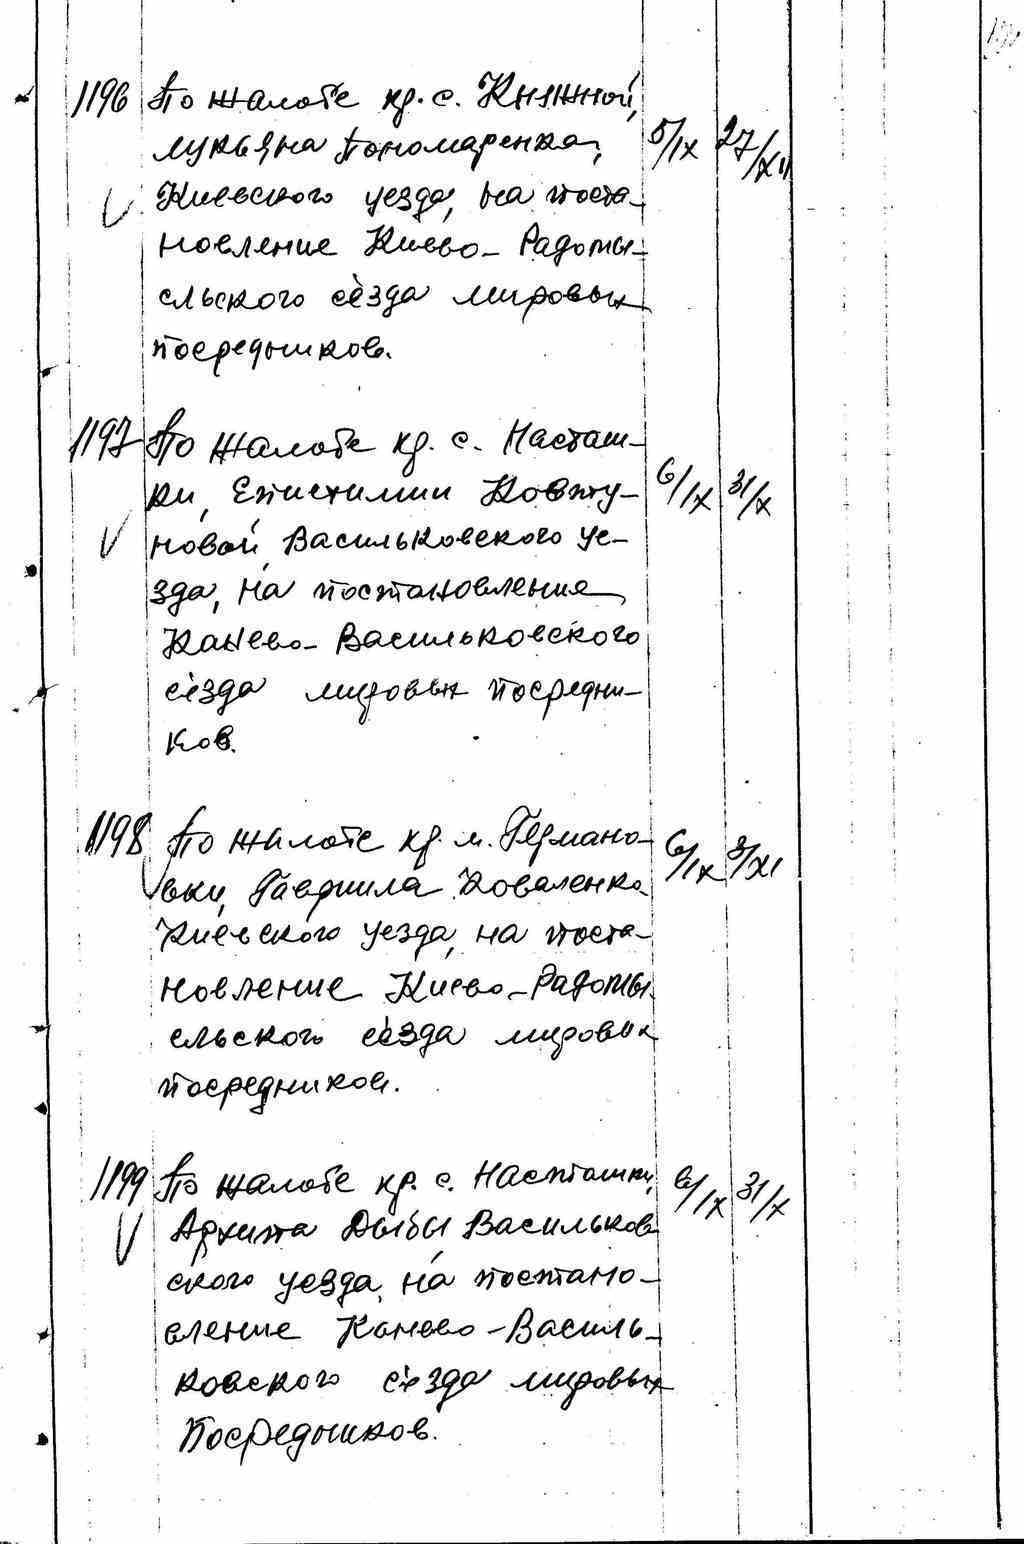 1196 По жалобе кр. с. Княжной,
Лукьяна Пономаренка, 5/IX 27/XII
Киевского уезда, на поста-
новление Киево-Радомы-
сльского сьезда мировых
посредников.
1197 По жалобе кр. с. Насташ-
ки, Епистимии Ковту- 6/IX 31/X
новой Васильковского уе-
зда, на постановления
Канево-Васильковского
сьезда мировых посредни-
ков.
1198 По жалобе кр. м. Германо-
вки, Гавриила Коваленка 6/IX 3/XI
Киевского уезда, на поста-
новление Киево-Радомы
сльского сьезда мировых
посредников.
1199 По жалобе кр. с. Насташки, 6/IX 31/X
Архипа Дыбы Васильков
ского уезда, на постано-
вление Канево-Василь-
ковского сьезда мировых
посредников.